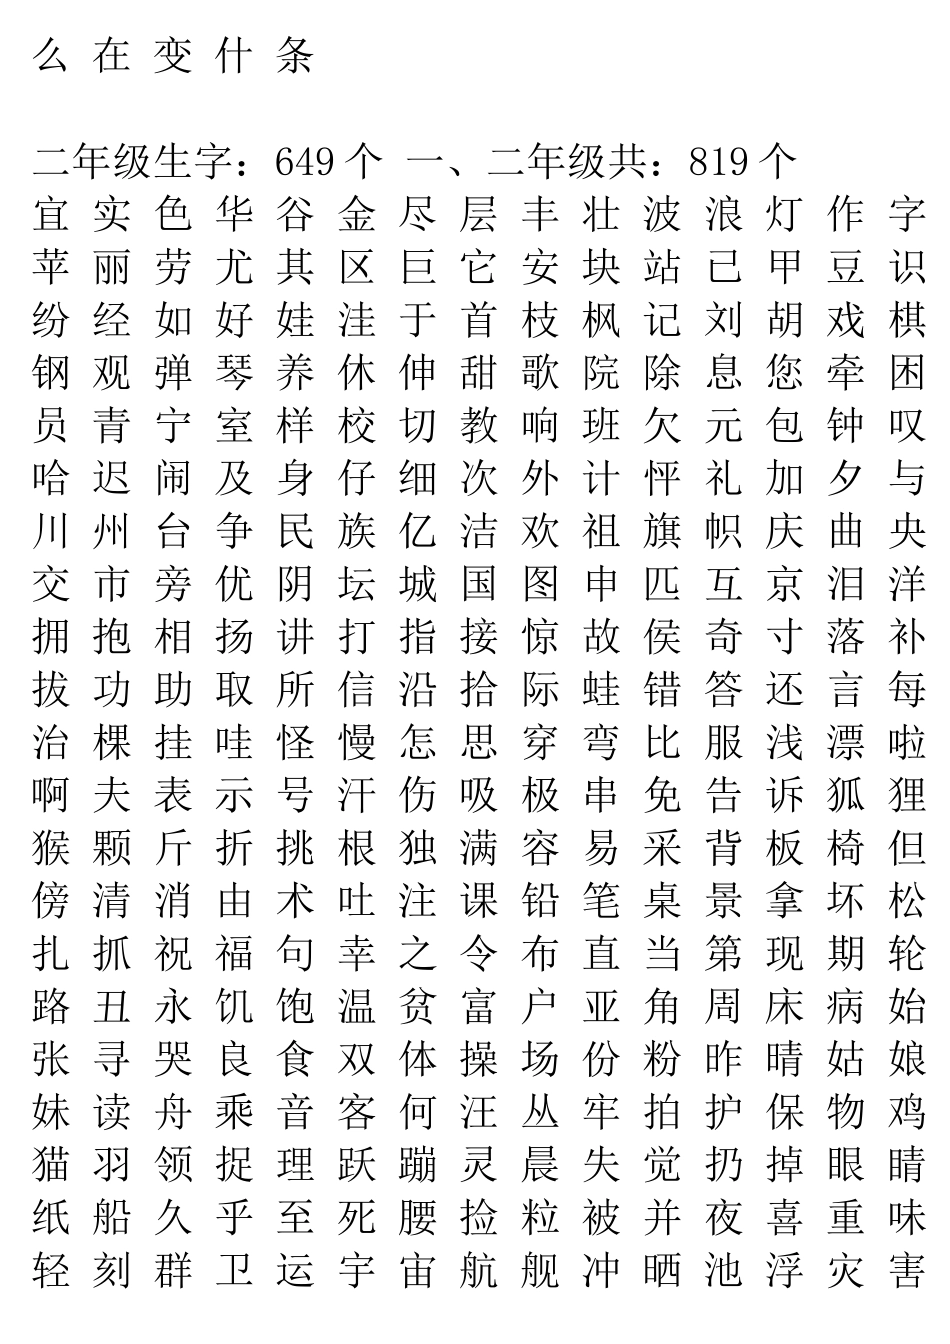 么 在 变 什 条
二年级生字：649 个 一、二年级共：819 个
宜 实 色 华 谷 金 尽 层 丰 壮 波 浪 灯 作 字
苹 丽 劳 尤 其 区 巨 它 安 块 站 已 甲 豆 识
纷 经 如 好 娃 洼 于 首 枝 枫 记 刘 胡 戏 棋
钢 观 弹 琴 养 休 伸 甜 歌 院 除 息 您 牵 困
员 青 宁 室 样 校 切 教 响 班 欠 元 包 钟 叹
哈 迟 闹 及 身 仔 细 次 外 计 怦 礼 加 夕 与
川 州 台 争 民 族 亿 洁 欢 祖 旗 帜 庆 曲 央
交 市 旁 优 阴 坛 城 国 图 申 匹 互 京 泪 洋
拥 抱 相 扬 讲 打 指 接 惊 故 侯 奇 寸 落 补
拔 功 助 取 所 信 沿 拾 际 蛙 错 答 还 言 每
治 棵 挂 哇 怪 慢 怎 思 穿 弯 比 服 浅 漂 啦
啊 夫 表 示 号 汗 伤 吸 极 串 免 告 诉 狐 狸
猴 颗 斤 折 挑 根 独 满 容 易 采 背 板 椅 但
傍 清 消 由 术 吐 注 课 铅 笔 桌 景 拿 坏 松
扎 抓 祝 福 句 幸 之 令 布 直 当 第 现 期 轮
路 丑 永 饥 饱 温 贫 富 户 亚 角 周 床 病 始
张 寻 哭 良 食 双 体 操 场 份 粉 昨 晴 姑 娘
妹 读 舟 乘 音 客 何 汪 丛 牢 拍 护 保 物 鸡
猫 羽 领 捉 理 跃 蹦 灵 晨 失 觉 扔 掉 眼 睛
纸 船 久 乎 至 死 腰 捡 粒 被 并 夜 喜 重 味
轻 刻 群 卫 运 宇 宙 航 舰 冲 晒 池 浮 灾 害